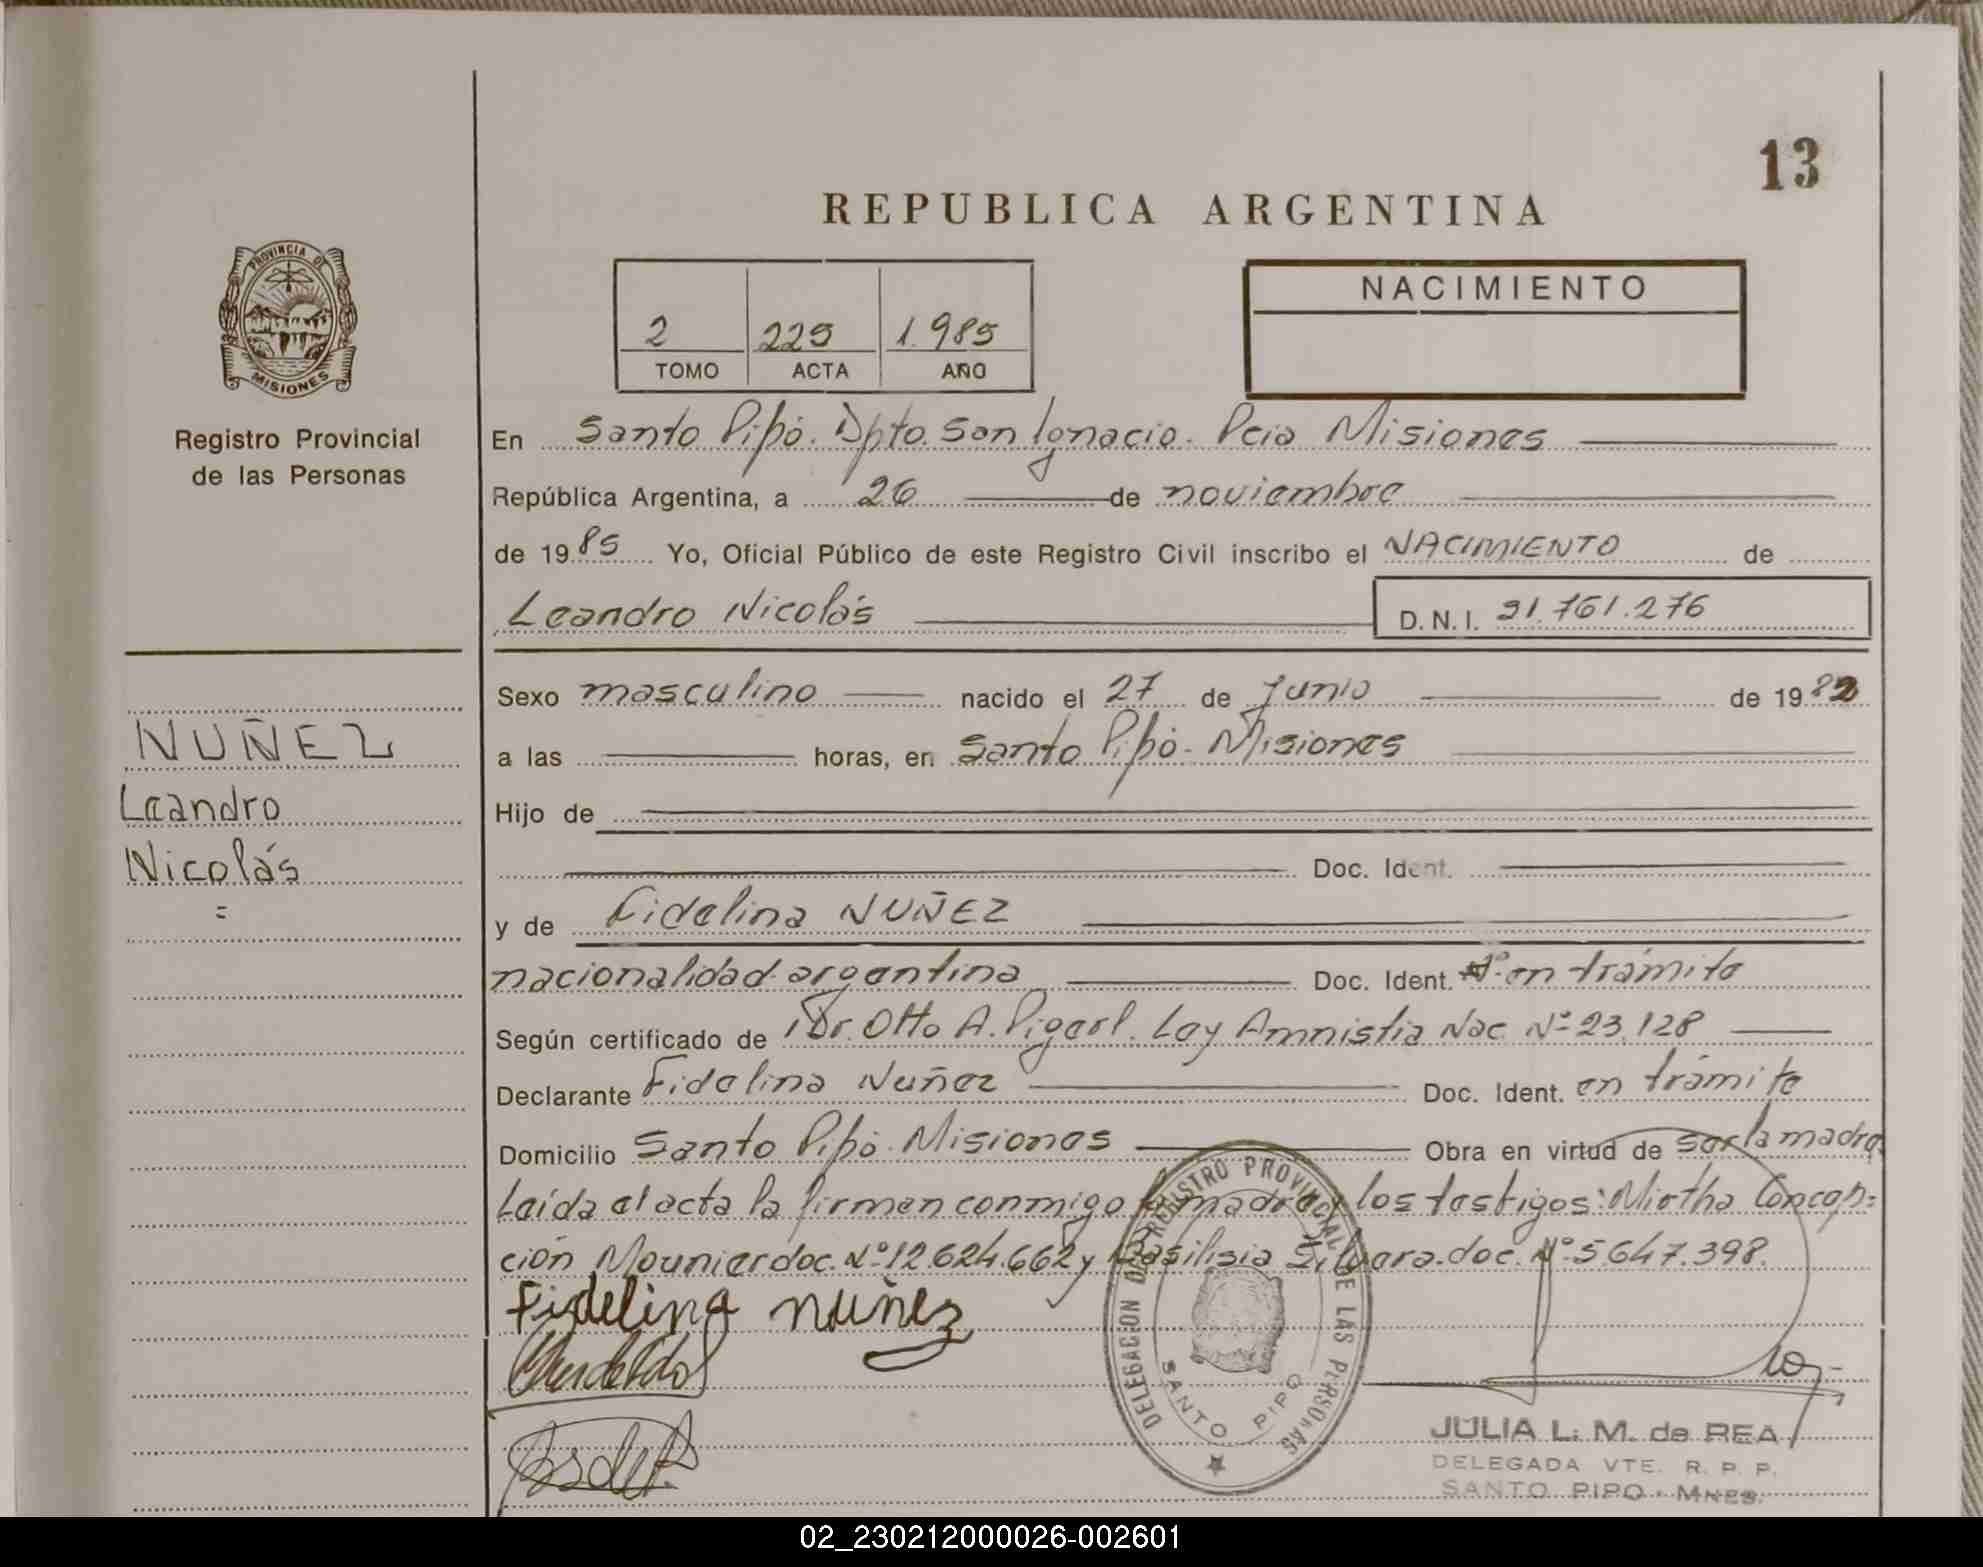 13
REPUBLICA ARGENTINA
PROVINCIA DE
MISIONES
Registro Provincial
de las Personas
2 229 1.985
TOMO ACTA AÑO
NACIMIENTO
En Santo Pipó. Dpto. San Ignacio. Pcia Misiones
República Argentina, a 26 de noviembre
de 1985 Yo, Oficial Público de este Registro Civil inscribo el NACIMIENTO de
Leandro Nicolás D.N.I. 31.761.276
Sexo masculino nacido el 27 de Junio de 1982
NUÑEZ
Leandro
Nicolás
=
a las horas, en Santo Pipó. Misiones
Hijo de
Doc. Ident.
y de Fidelina NUÑEZ
nacionalidad argentina Doc. Ident. Nº en trámite
Según certificado de Dr. Otto A. Ley Amnistia Nac. Nº 23.128
Declarante Fidelina Nuñez Doc. Ident. en trámite
Domicilio Santo Pipó. Misiones Obra en virtud de ser la madre.
Leída el acta la firman conmigo la madre y los testigos: Mirtha Concep=
ción Mounier doc. Nº 12.624.662 y Basilisia doc. Nº 5.647.398.
Fidelina nuñez
DELEGACION DEL REGISTRO PROVINCIAL DE LAS PERSONAS
SANTO PIPO
JULIA L. M. de REA
DELEGADA VTE. R. P. P.
SANTO PIPO - MNES.
02_230212000026-002601